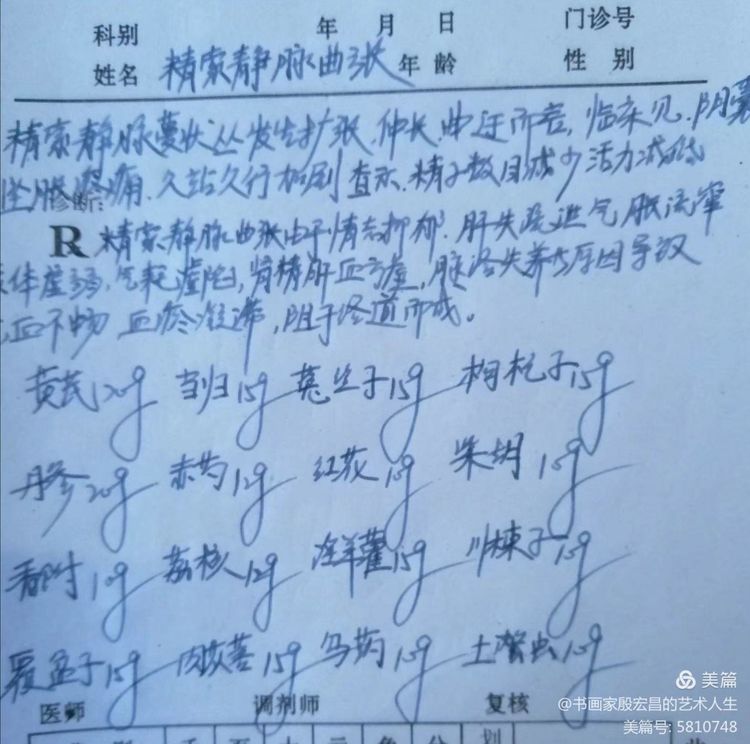 科别 年 月 日 门诊号
姓名 精索静脉曲张 年 龄 性 别
精索静脉蔓状丛发生扩张.伸长.曲迂而言,临床见.阴囊
坠胀疼痛.久站久行加剧 查示.精子数目减少活力减低
诊断:
R 精索静脉曲张由于情志抑郁,肝失疏泄气胀
体虚弱,气耗 肾精肝血亏虚,脉络失养等原因导致
血不畅 血瘀 ,阻于络道而成。
黄芪20g 当归15g 菟丝子15g 枸杞子15g
丹参20g 赤芍12g 红花10g 柴胡10g
香附10g 荔核12g 淫羊藿15g 川楝子10g
覆盆子15g 肉苁蓉15g 乌药10g 土鳖虫10g
医师 调剂师 复核
美篇
@书画家殷宏昌的艺术人生
美篇号: 5810748